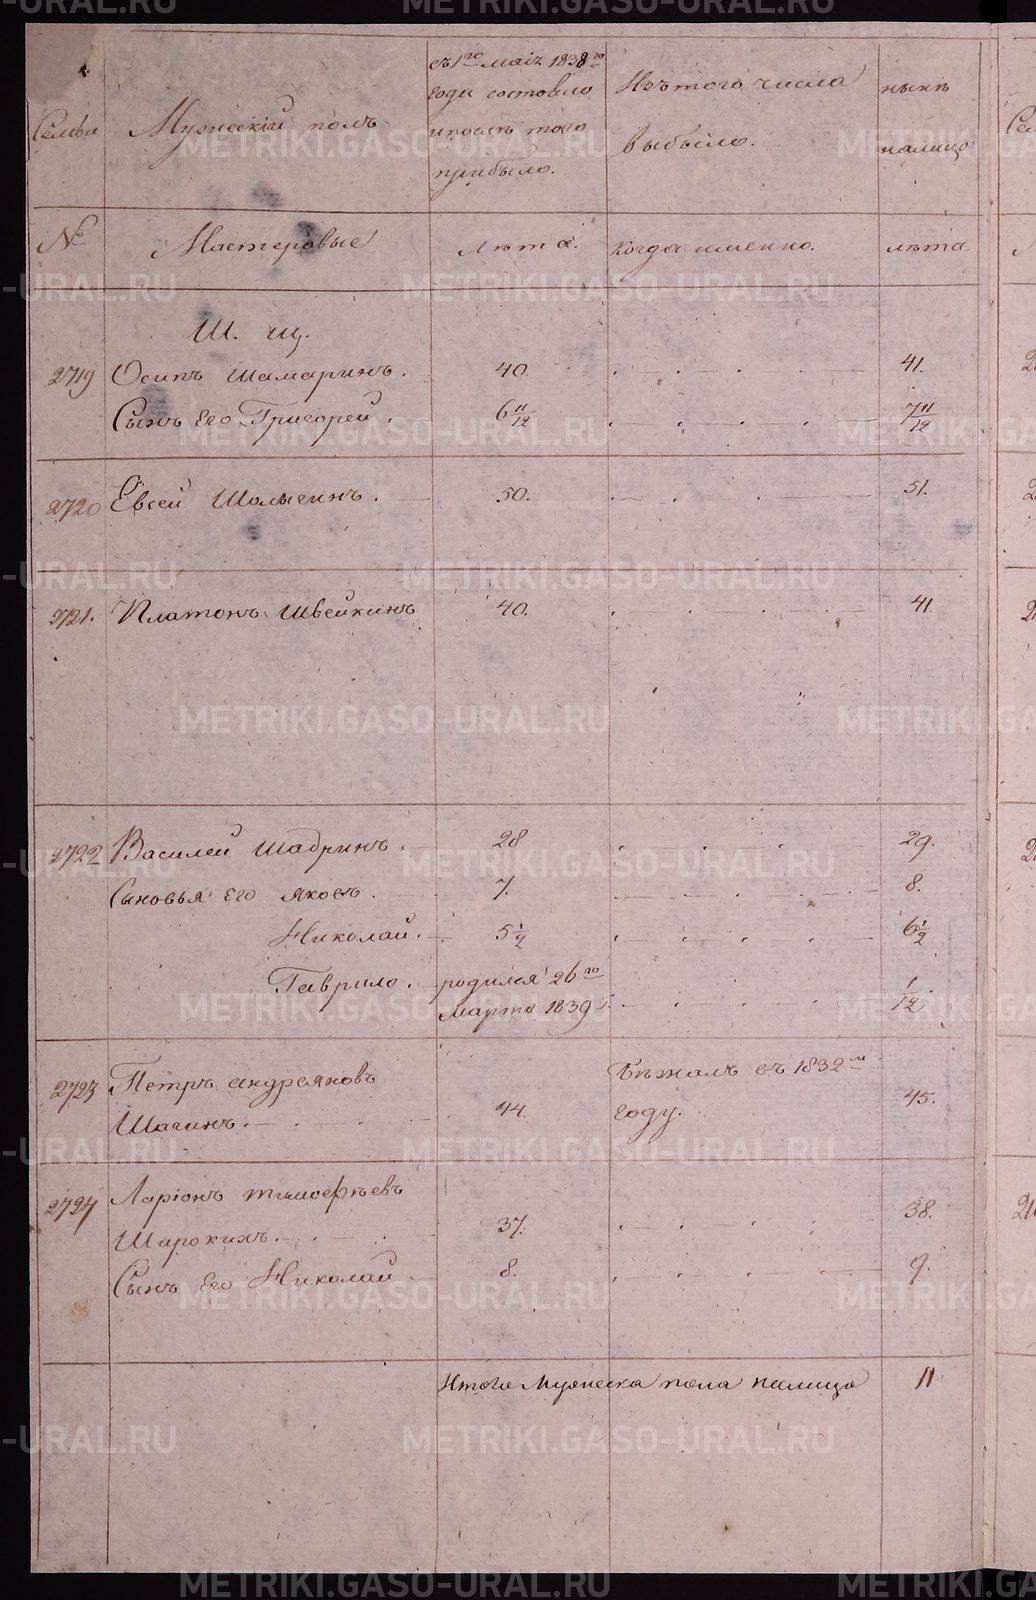 Семьи
Мужескій полъ
съ 1го маія 1838го
года состояло
и послѣ того
прибыло.
Изъ того числа
выбыло.
нынѣ
налицо
№
Мастеровые
лѣта.
когда именно.
лѣта.
Ш. Щ.
2719 Осипъ Шамаринъ. 40. 41.
Сынъ его Григорей. 6 11/12 7 11/12
2720 Евсей Шолыгинъ. 50. 51.
2721. Платонъ Швейкинъ 40. 41.
2722 Василей Шадринъ. 28 29.
Сыновья его Яковъ. 7. 8.
Николай. 5 1/2 6 1/2
Гаврило. родился 26го 1/12.
марта 1839 г.
2723 Петръ Андреяновъ Бѣжалъ въ 1832мъ
Шагинъ. 44. году. 45.
2724 Ларіонъ Тимофѣевъ
Широкихъ. 37. 38.
Сынъ его Николай 8. 9.
Итого Мужеска пола налицо 11
METRIKI.GASO-URAL.RU